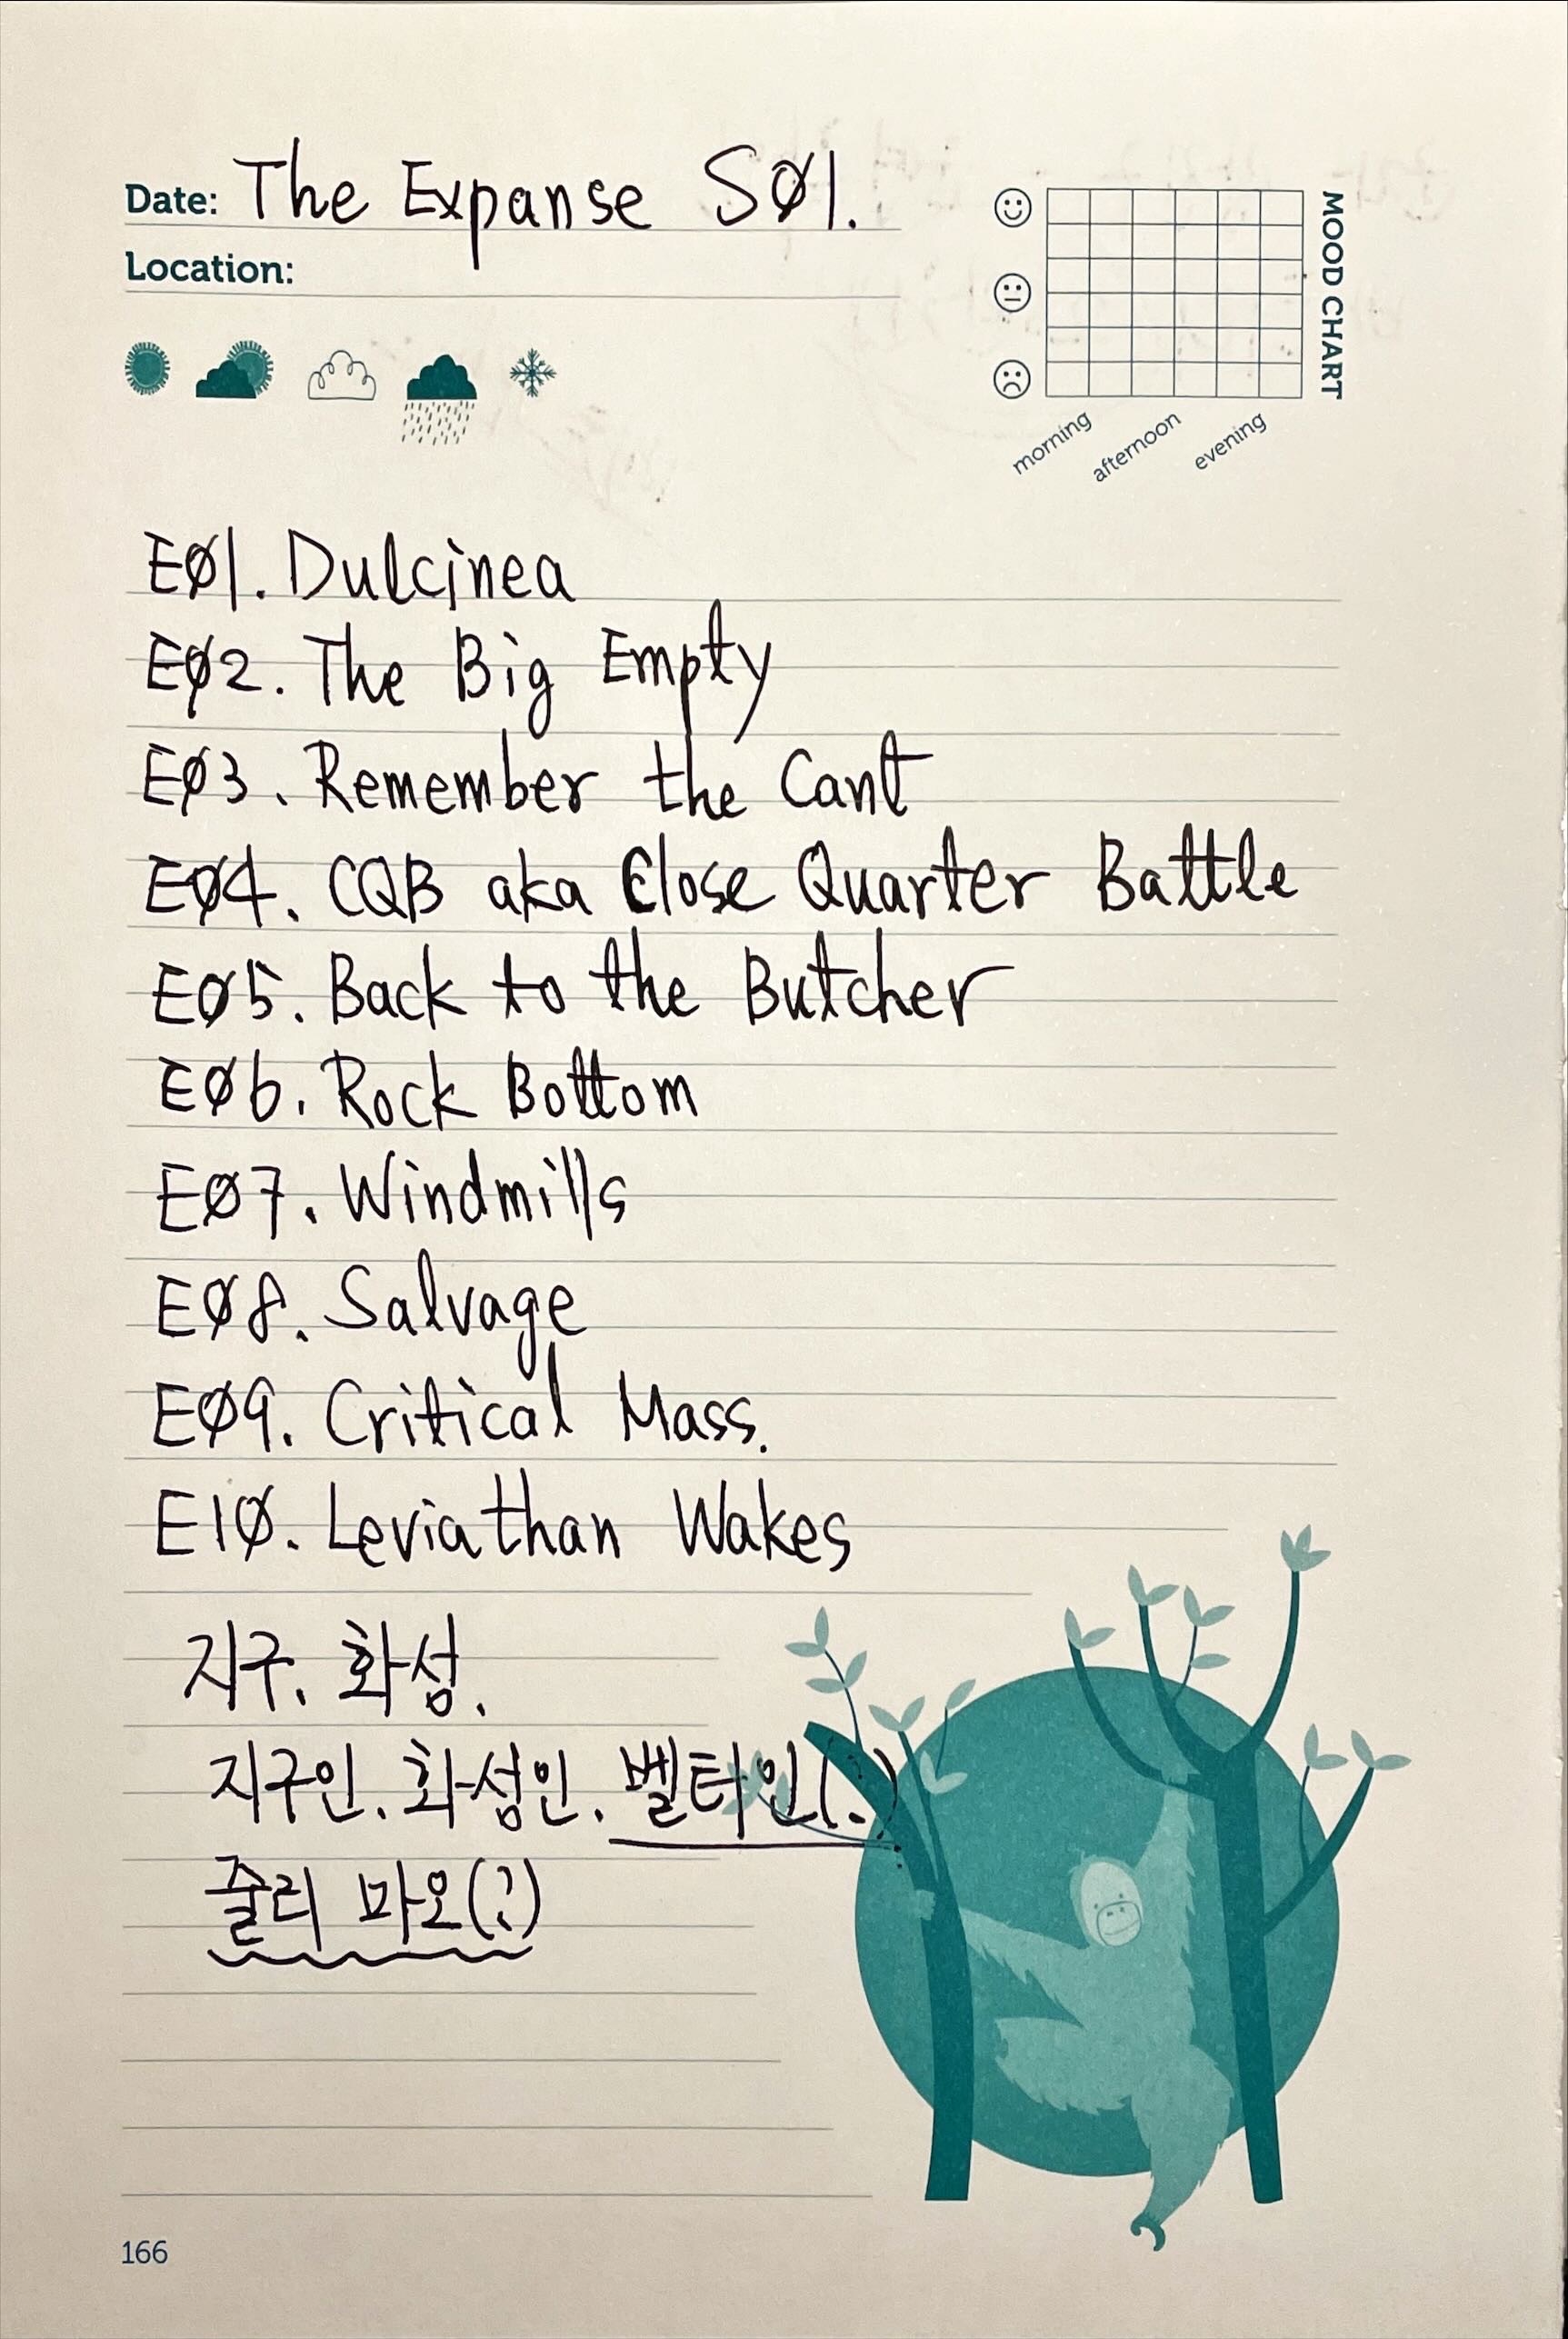 Date: The Expanse SØ1.
Location:
MOOD CHART
morning afternoon evening
EØ1. Dulcinea
EØ2. The Big Empty
EØ3. Remember the Cant
EØ4. CQB aka Close Quarter Battle
EØ5. Back to the Butcher
EØ6. Rock Bottom
EØ7. Windmills
EØ8. Salvage
EØ9. Critical Mass.
E1Ø. Leviathan Wakes
지구. 화성.
지구인. 화성인. 벨타인(?)
줄리 마오(?)
166